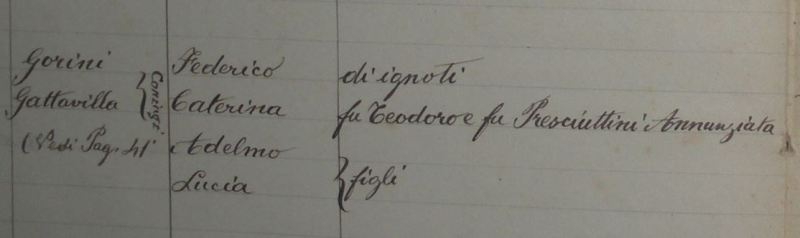 Gorini Federico di ignoti
Gattavilla Coniugi Caterina fu Teodoro e fu Presciuttini Annunziata
(Vedi Pag. 41 Adelmo
Lucia figli